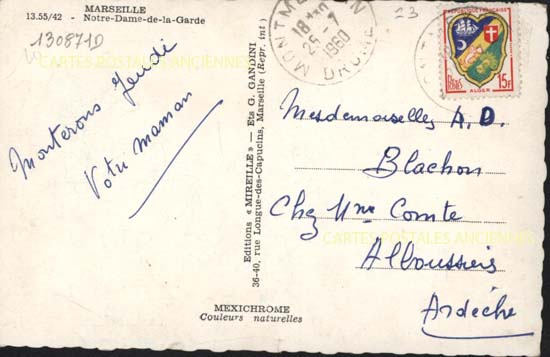 MARSEILLE
13.55/42 - Notre-Dame-de-la-Garde
130871D
CARTES POSTALES ANCIENNES
Monterons jeudi
Votre maman
Editions « MIREILLE » — Ets G. GANDINI
36-40, rue Longue-des-Capucins, Marseille (Repr. int)
MEXICHROME
Couleurs naturelles
18H
25-7
1960
DROME
23
REPUBLIQUE FRANÇAISE
POSTES
15F
ALGER
Mesdemoiselles A. D.
Blachon
Chez Mme Comte
CARTES POSTALES ANCIENNES
Alboussière
Ardèche